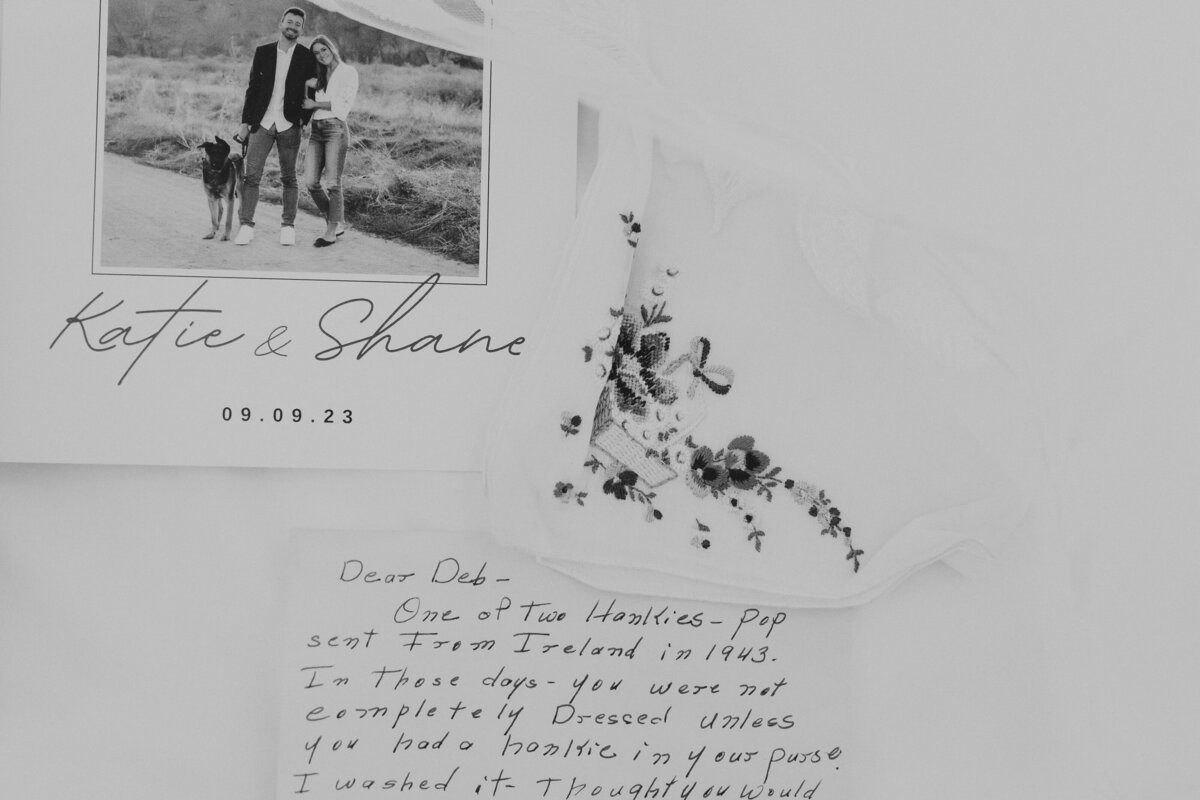 Katie & Shane
09.09.23
Dear Deb-
One of Two Hankies - Pop
sent From Ireland in 1943.
In those days - you were not
completely Dressed unless
you had a hankie in your purse.
I washed it - Thought you would